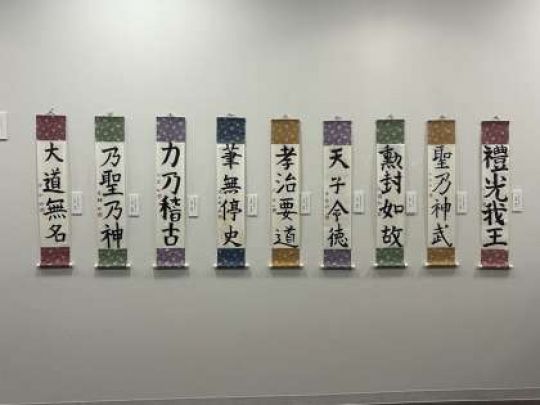 禮光我王
聖乃神武
勳封如故
天子令徳
孝治要道
筆無停史
力乃稽古
乃聖乃神
大道無名